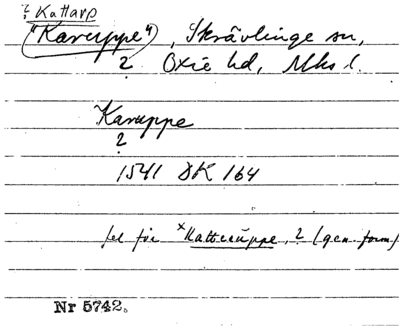 ? Kattarp
("Karuppe"), Skrävlinge sn,
? Oxie hd, Mhs l.
Karuppe
?
1541 DK 164
fel för *Katteruppe, ? (gen. form)
Nr 5742.